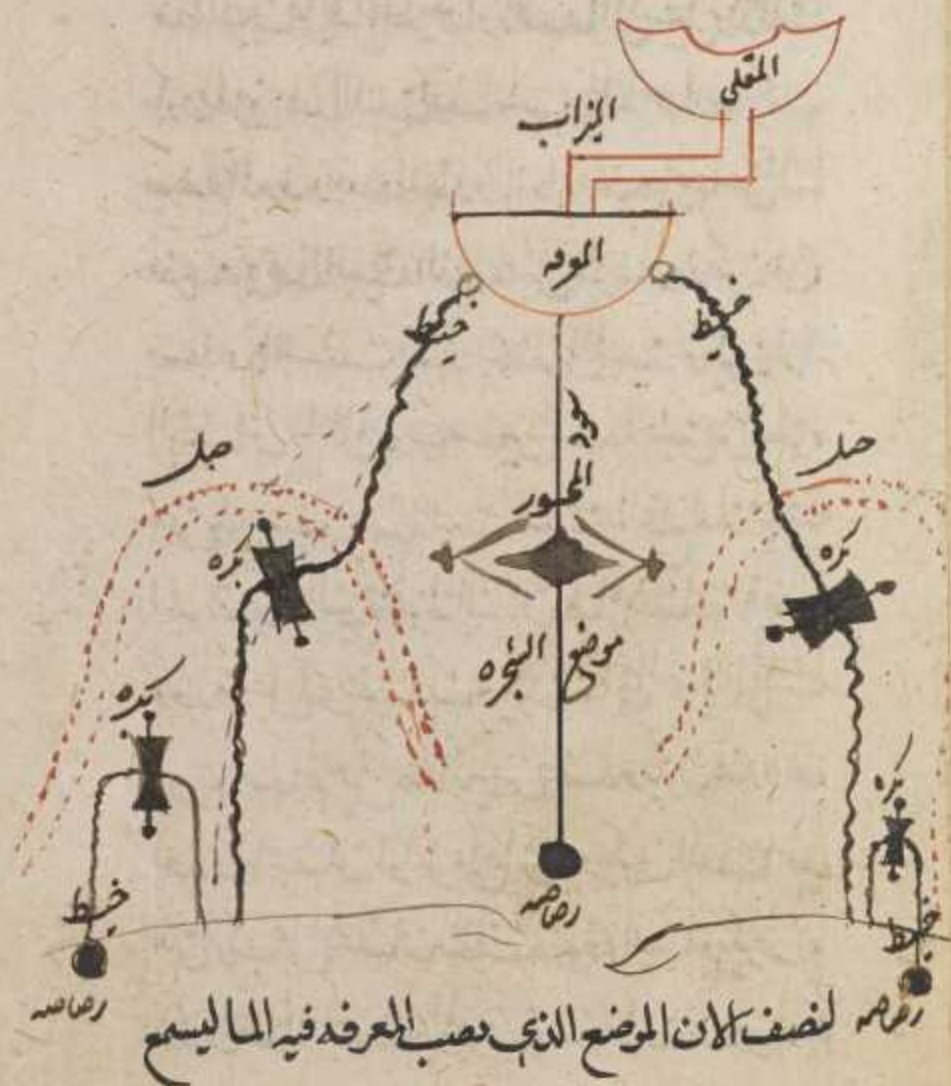 المقلى
الميزاب
الموفه
خيط
خيط
عمود
المحور
جبل
جبل
بكره
بكره
موضع الشجره
بكره
بكره
خيط
خيط
رصاصه
رصاصه
رصاصه
لنصف الان الموضع الذي يصب المعرفه فيه الما ليسمع